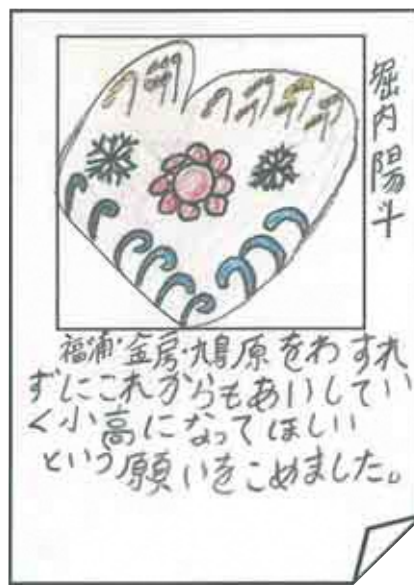 堀内陽斗
福浦・金房・鳩原をわすれ
ずにこれからもあいしてい
く小高になってほしい
という願いをこめました。